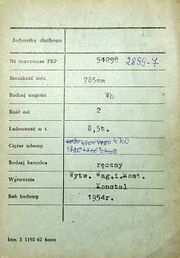 Jednostka służbowa
Nr inwentarza PKP 2899-7
Szerokość toru 785mm
Rodzaj wagonu Wh
Ilość osi 2
Ładowność w t. 8,5t.
Ciężar własny 4700
Rodzaj hamulca ręczny
Wytwórnia Wytw. Wag.i.Most.
Konstal
Rok budowy 1954r.